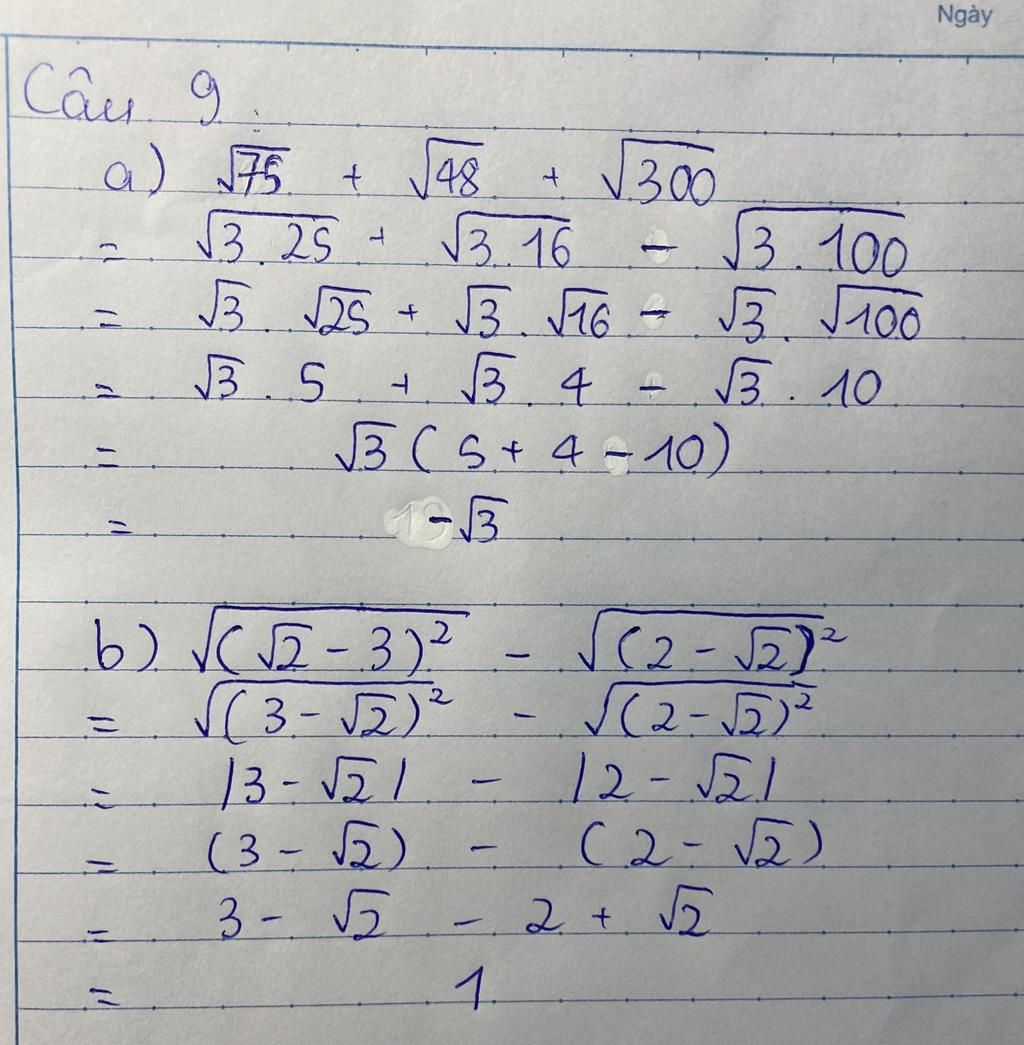 Ngày
Câu 9
a) √75 + √48 + √300
= √3.25 + √3.16 - √3.100
= √3 . √25 + √3 . √16 - √3 . √100
= √3 . 5 + √3 . 4 - √3 . 10
= √3 ( 5 + 4 - 10 )
= -√3
b) √(√2 - 3)² - √(2 - √2)²
= √(3 - √2)² - √(2 - √2)²
= |3 - √2| - |2 - √2|
= (3 - √2) - (2 - √2)
= 3 - √2 - 2 + √2
= 1